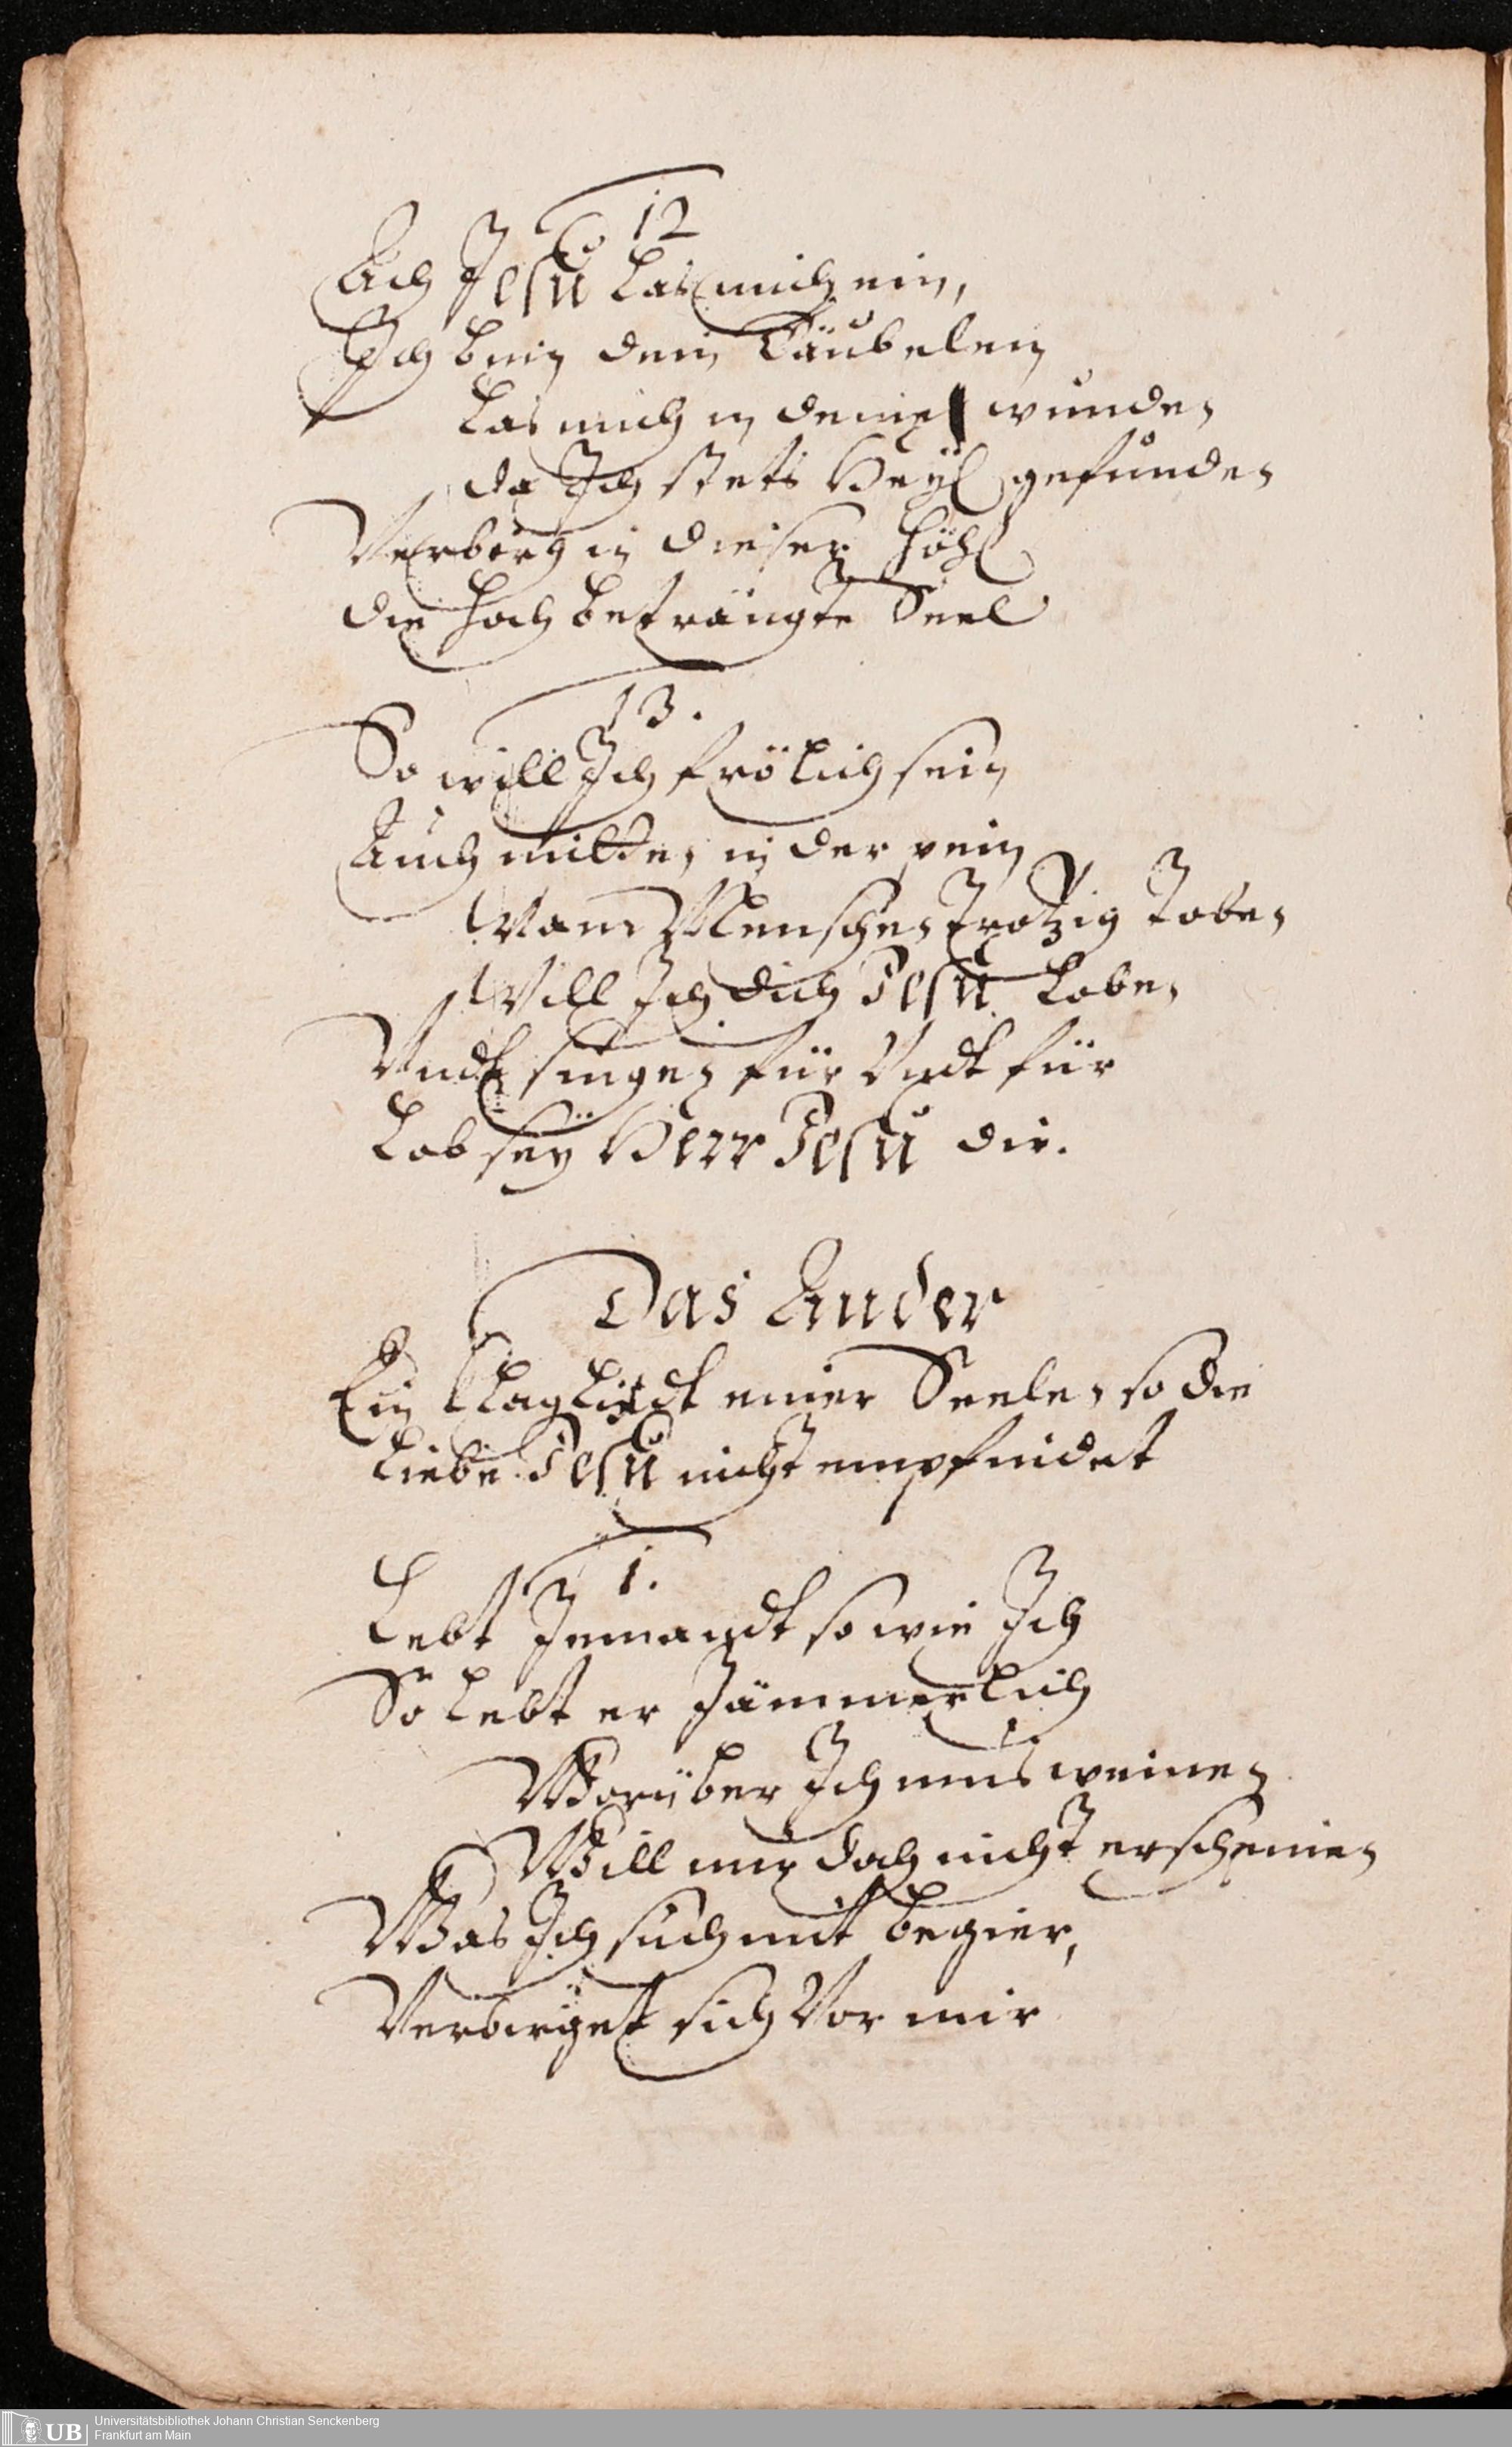 12
Ach Jesu las mich ein,
Ich bin dein Täubelein
Las mich in deine wunden
da Ich stets Heyl gefunden
Verberg in dieser Höhl
die hoch beträngte Seel
13.
So will Ich frölich sein
Auch mitten in der pein
Wann Menschen Trotzig Toben
Will Ich dich Jesu Loben
Vndt singen für Vndt für
Lob sey Herr Jesu dir.
Das Ander
Ein Klagliedt einer Seelen so die
Liebe Jesu nicht empfindet
1.
Lebt Jemandt so wie Ich
So Lebt er Jämmerlich
Worüber Ich mus weinen
Will mir doch nicht erscheinen
Was Ich such mit begier,
Verbirget sich Vor mir
UB
Universitätsbibliothek Johann Christian Senckenberg
Frankfurt am Main